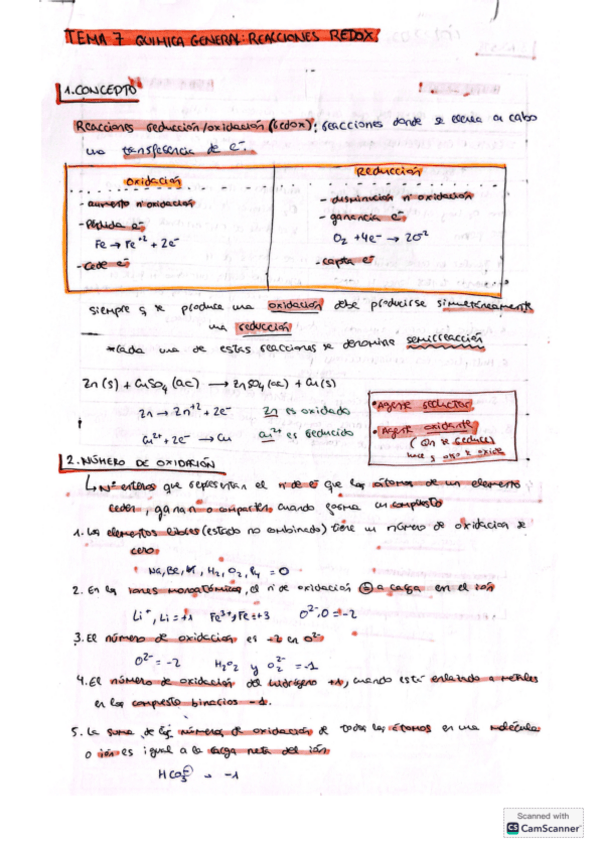 TEMA 7 QUIMICA GENERAL: REACCIONES REDOX.
1. CONCEPTO
Reacciones reducción/oxidación (redox): reacciones donde se lleva a cabo
una transferencia de e-.
Oxidación
- aumento nº oxidación
- Pérdida e-
Fe → Fe+2 + 2e-
- Cede e-
Reducción
- disminución nº oxidación
- ganancia e-
O2 + 4e- → 2O-2
- capta e-
siempre q se produce una oxidación debe producirse simultáneamente
una reducción
*cada una de estas reacciones se denomina semirreacción
Zn (s) + CuSO4 (ac) → ZnSO4 (ac) + Cu (s)
Zn → Zn+2 + 2e- Zn es oxidado
Cu2+ + 2e- → Cu Cu2+ es reducido
• Agente reductor
• Agente oxidante
(Qn se reduce)
hace q otro se oxide
2. NÚMERO DE OXIDACIÓN
↳ Nº enteros que representan el nº de e- que los átomos de un elemento
ceden, ganan o comparten cuando forma un compuesto
1. Los elementos libres (estado no combinado) tiene un número de oxidación de
cero.
Na, Be, K, H2, O2, P4 = 0
2. En los iones monoatómicos, el nº de oxidación = a carga en el ión
Li+, Li = +1 Fe3+, Fe = +3 O2-, O = -2
3. El número de oxidación es -2 en O2-
O2- = -2 H2O2 y O2 2- = -1
4. El número de oxidación del hidrógeno +1, cuando está enlazado a metales
en los compuesto binarios -1.
5. La suma de los números de oxidación de todos los átomos en una molécula
o ión es igual a la carga neta del ión.
HCO3- → -1
Scanned with
CS CamScanner